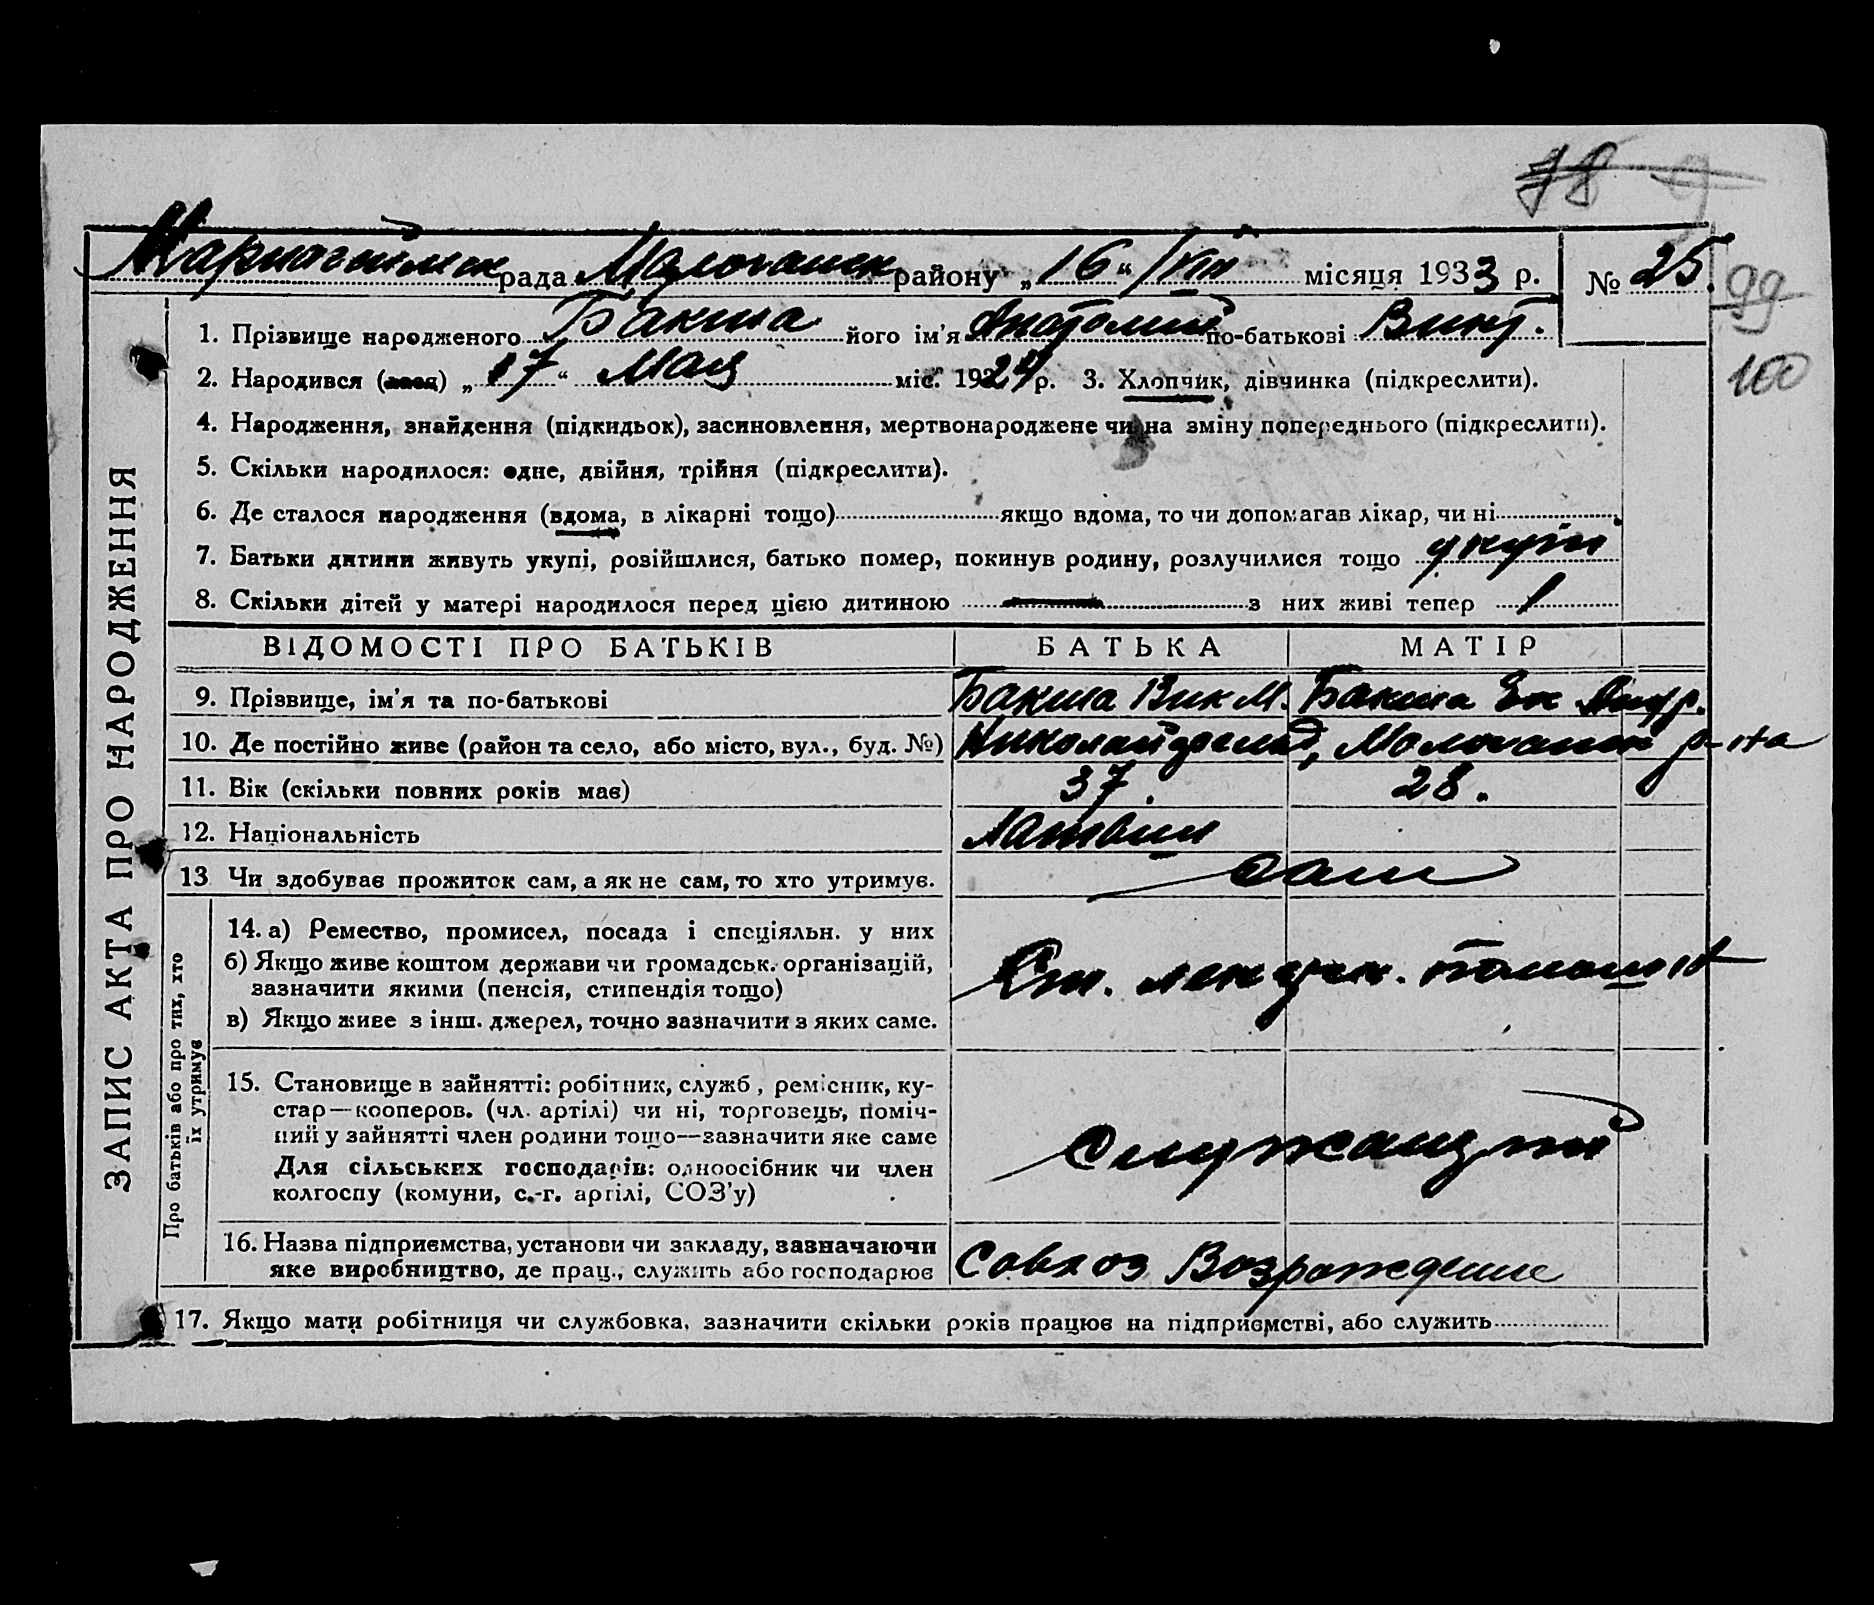 78 9
рада Молочанск району „16“ VIII місяця 1933 р. № 25. 99
1. Прізвище народженого Бакша його ім'я Анатолий по-батькові Викт. 100
2. Народився (лась) „17“ Мая міс. 1924 р. 3. Хлопчик, дівчинка (підкреслити).
4. Народження, знайдення (підкидьок), засиновлення, мертвонароджене чи на зміну попереднього (підкреслити).
5. Скільки народилося: одне, двійня, трійня (підкреслити).
6. Де сталося народження (вдома, в лікарні тощо) якщо вдома, то чи допомагав лікар, чи ні
7. Батьки дитини живуть укупі, розійшлися, батько помер, покинув родину, розлучилися тощо укупі
8. Скільки дітей у матері народилося перед цією дитиною — з них живі тепер 1
ЗАПИС АКТА ПРО НАРОДЖЕННЯ
ВІДОМОСТІ ПРО БАТЬКІВ БАТЬКА МАТІР
9. Прізвище, ім'я та по-батькові Бакша Вик М. Бакша Ек Андр.
10. Де постійно живе (район та село, або місто, вул., буд. №) Николайдорф, Молочанск р-на
11. Вік (скільки повних років має) 37. 28.
12. Національність Латвіи
13 Чи здобуває прожиток сам, а як не сам, то хто утримує. Сам
Про батьків або про тих, хто
їх утримує
14. а) Ремество, промисел, посада і спеціяльн. у них
б) Якщо живе коштом держави чи громадськ. організацій,
зазначити якими (пенсія, стипендія тощо)
в) Якщо живе з інш. джерел, точно зазначити з яких саме.
15. Становище в зайнятті: робітник, служб, ремісник, ку-
стар—кооперов. (чл. артілі) чи ні, торговець, поміч-
ний у зайнятті член родини тощо—зазначити яке саме
Для сільських господарів: одноосібник чи член
колгоспу (комуни, с.-г. артілі, СОЗ'у)
Служащий
16. Назва підприємства, установи чи закладу, зазначаючи
яке виробництво, де прац., служить або господарює
Совхоз Возрождение
17. Якщо мати робітниця чи службовка, зазначити скільки років працює на підприємстві, або служить